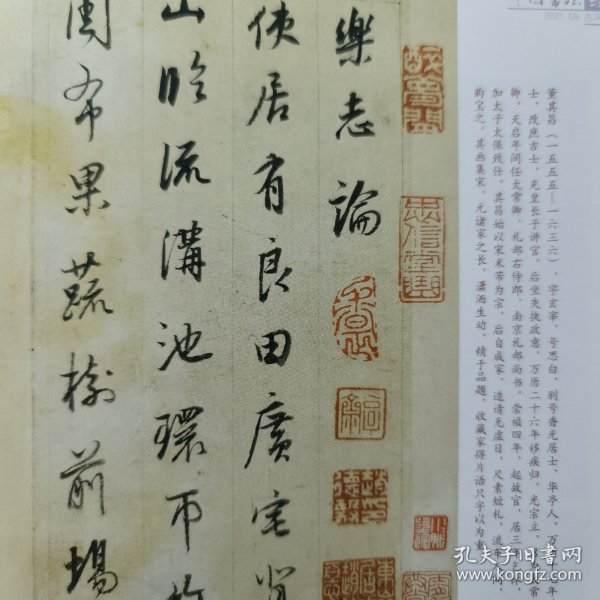 樂志論
使居有良田廣宅背
山臨流溝池環帀竹
圃布果蔬樹前場
董其昌（一五五五—一六三六），字玄宰，号思白，别号香光居士，华亭人。万
士，改庶吉士，充皇长子讲官，后坐失执政意，万历二十六年移疾归。光宗立，
卿。天启年间任太常卿、礼部右侍郎、南京礼部尚书。崇祯四年，起故官，居三
加太子太保致仕。其昌始以宋米芾为宗，后自成家，造诣无虚日，尺素短札，流
购宝之。其画集宋、元诸家之长，潇洒生动。精于品题，收藏家得片语只字以为重
2021.06
孔夫子旧书网